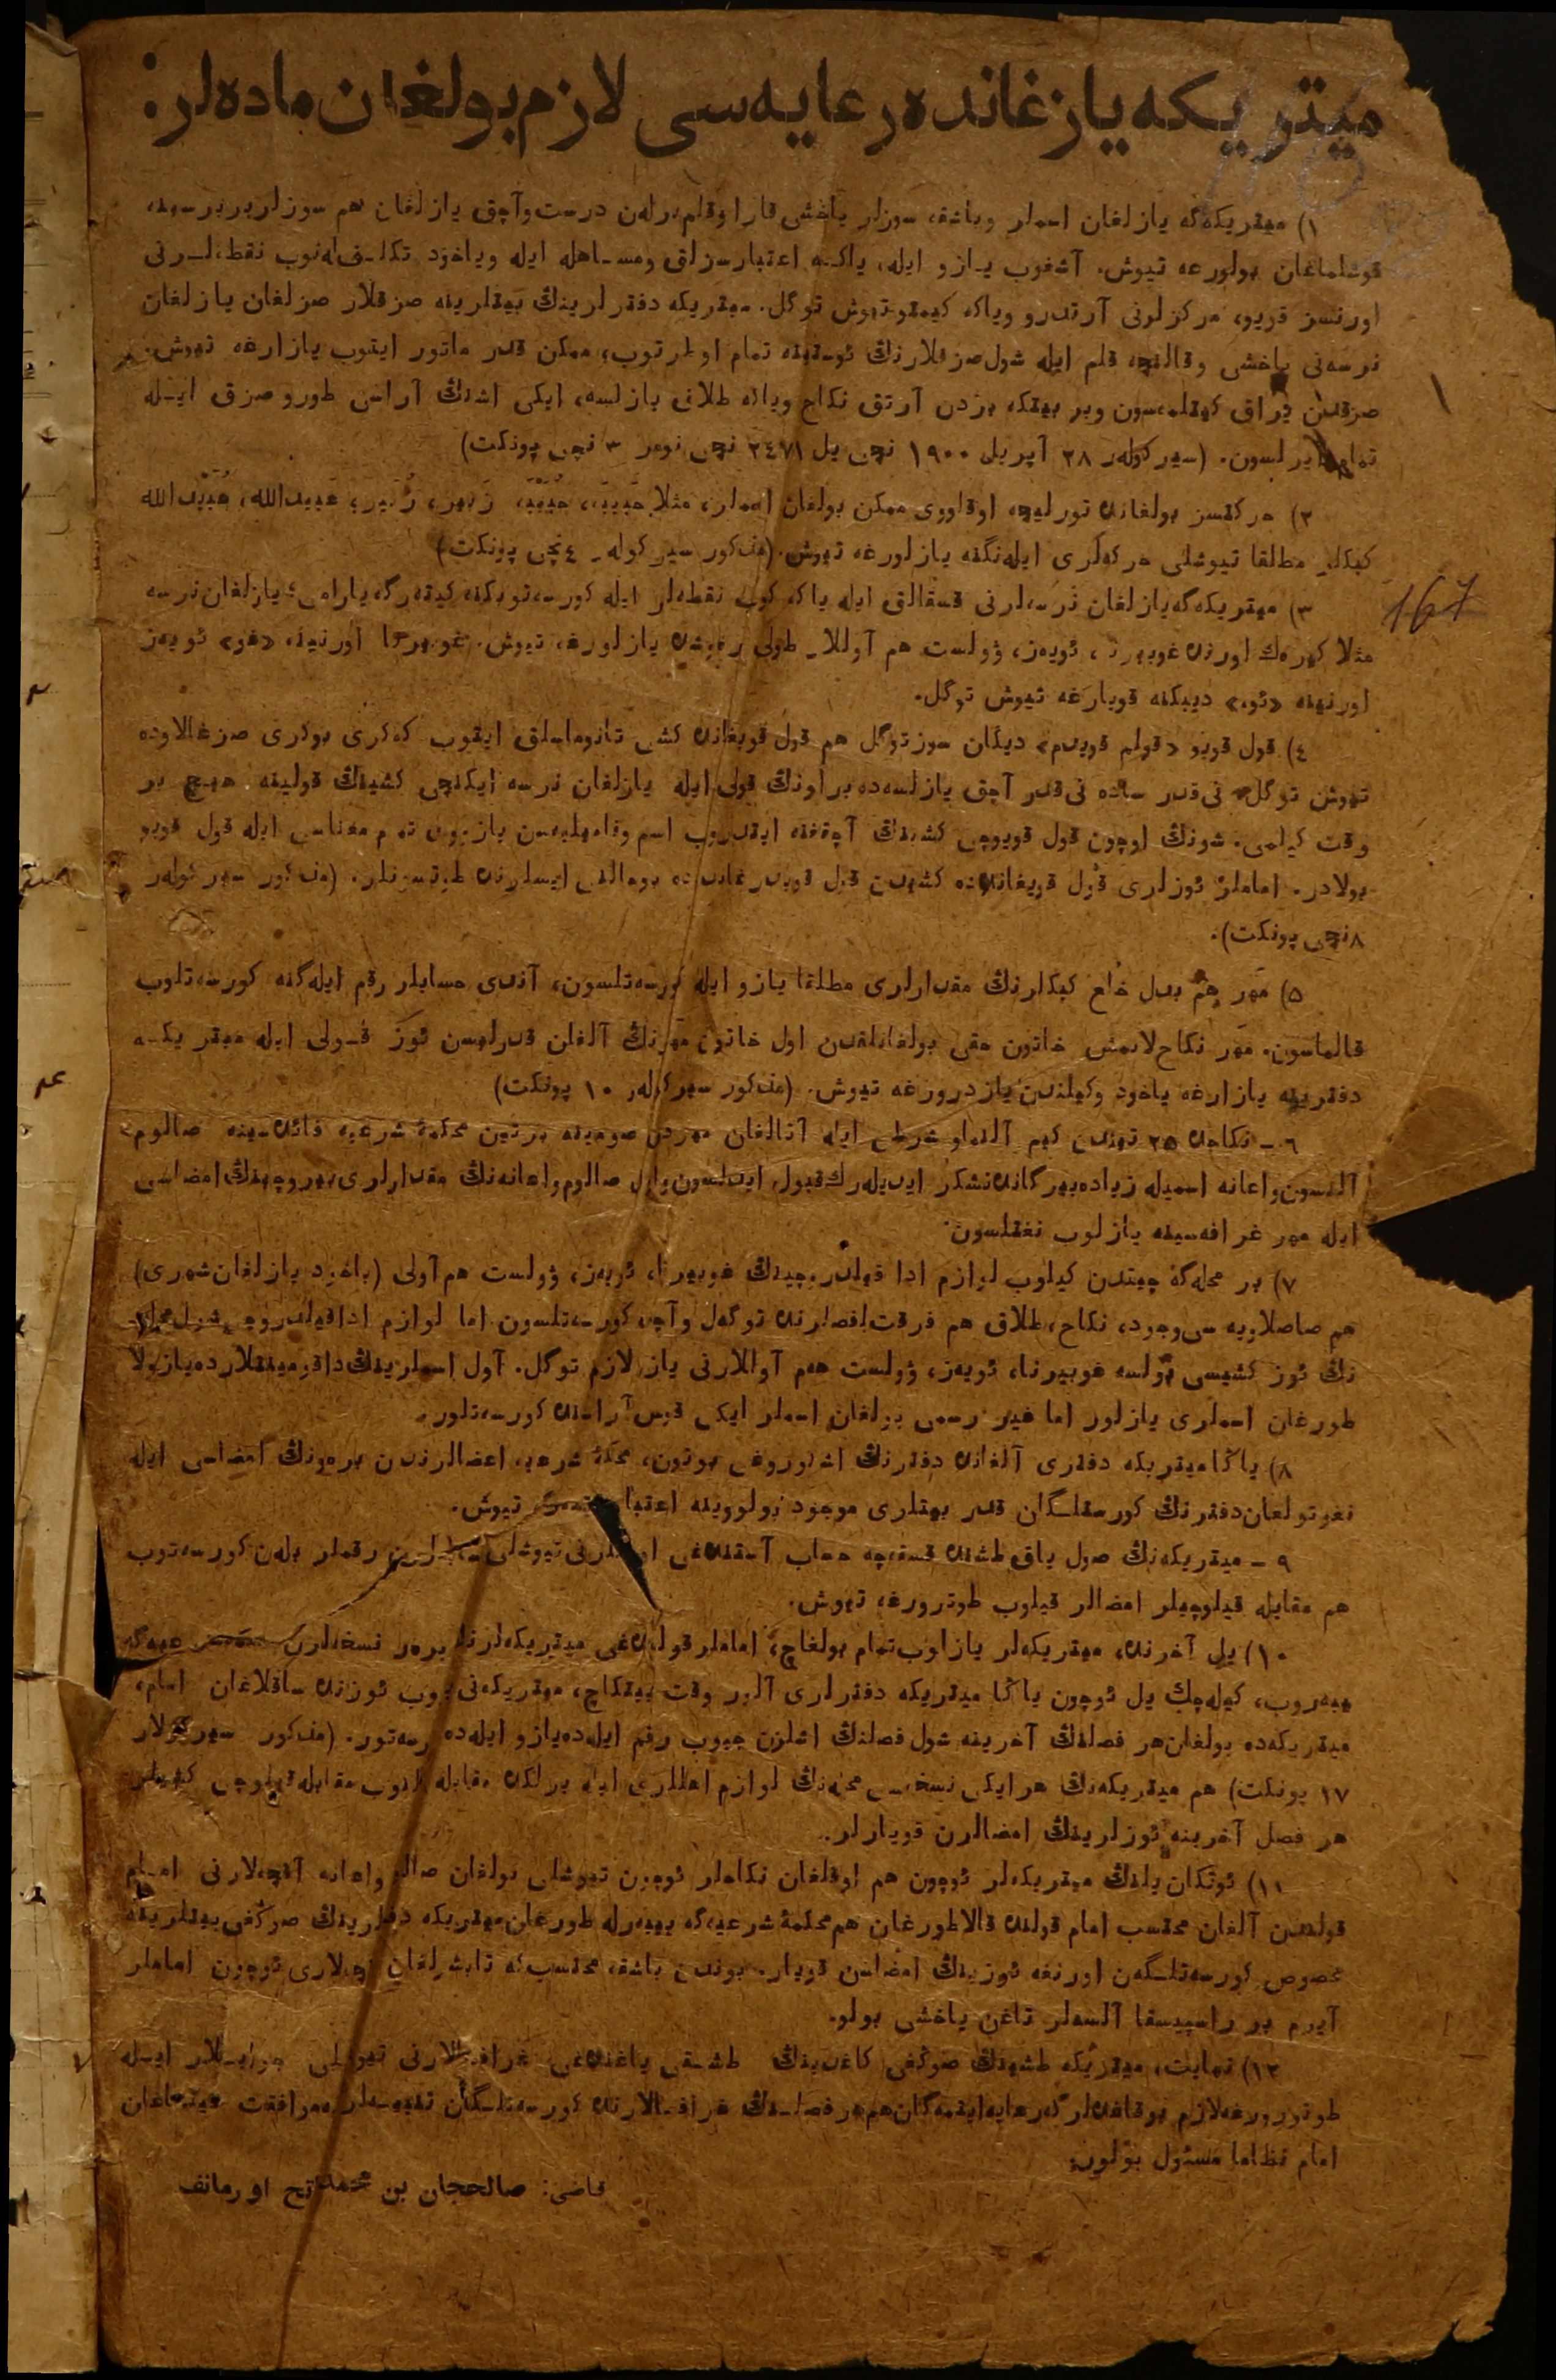 میتریکه یازغانده رعایه‌سی لازم بولغان ماده‌لر:
۱) میتریکه‌گه یازلغان اسملر وباشقه سوزلر یاخشی قارا وقلم برلەن درست وآچق یازلغان هم سوزلر بربرسینه
قوشلماغان بولورعه تیوش. آشغوب یازو ایله، یاکه اعتبارسزلق ومساهله ایله ویاخود تکلیف‌له‌نوب نقطه‌لرنی
اورنسز قویو، حرکزلرنی آرتدرو ویاکه کیمتو تیوش توگل. میتریکه دفترلرینڭ بیتلرینه صزقلار صزلغان یازلغان
نرسه‌نی یاخشی وقالنچه قلم ایله شول صزقلارنڭ ئوستینه تمام اولرتوب، ممکن قدر ماتور ایتوب یازارغه تیوش.
صزقدن یراق کیتلمه‌سون وبر بیتکه بزدن آرتق نکاح ویاکه طلاق یازلسه، ایکی اشنڭ آراسی طورو صزق ایله
تمام آیرلسون. (سیرکولەر ۲۸ آپریل ۱۹۰۰ نچی یل ۲٤۷۱ نچی نومر ۳ نچی پونکت)
۲) حرکتسز بولغانده تورلیچه اوقلووی ممکن بولغان اسملر، مثلا حَبِیبَه، حُبَیْبَه، زَبِیر، زُبَیر، عَبیدالله، عُبَیْدالله
کبکلر مطلقا تیوشلی حرکه‌لری ایله‌نگنه یازلورغه تیوش. (مذکور سیرکولەر ٤ نچی پونکت)
۳) میتریکه‌گه یازلغان نرسه‌لرنی قسقالق ایله یاکه کوب نقطه‌لر ایله کورسه‌توبکنه کیتەرگه یارامی؛ یازلغان نرسه
مثلا کیره‌ك اورنده غوبیرنا، ئویەز، ۋولست هم آوللار طولی رەوشده یازلورغه تیوش. غوبیرنا اورنینه «غو» ئویەز
اورنینه «ئو» دیبکنه قویارغه تیوش توگل.
٤) قول قویو «قولم قویدم» دیگان سوز توگل هم قول قویغانده کشی تانوماسلق ایتوب کەکری بوکری صزغالاوده
تیوش توگل. نی‌قدر ساده نی‌قدر آچق یازلسه‌ده براونڭ قولی ایله یازلغان نرسه ایکنچی کشینڭ قولینه هیچ بر
وقت کیلمی. شونڭ اوچون قول قویوچی کشینڭ آچقغنه ایتدروب اسم وفامیلیه‌سن یازیوی تمام معناسی ایله قول قویو
بولادر. اماملر ئوزلری قول قویغانده‌ده کشیدن قول قویدرغانده‌ده بوماللنی ایسلرنده طوتسونلر. (مذکور سیرکولەر
۸ نچی پونکت).
۵) مَهَر هم بدل خلع کبکلرنڭ مقدارلری مطلقا یازو ایله کورسه‌تلسون، آندی حسابلر رقم ایله‌گنه کورسه‌تلوب
قالماسون. مهر نکاح‌لانمش خاتون حقی بولغانلقدن اول خاتون مهرنڭ آلغان قدرلیسن ئوز قولی ایله میتریکه
دفترینه یازارغه یاخود وکیلندن یازدرورغه تیوش. (مذکور سیرکولەر ۱۰ پونکت)
٦ ـ نکاحده ۲۵ تیندن کیم آلنماو شرطی ایله آتالغان مهردن صومینه برتین محکمۀ شرعیه فائده‌سینه صالوم
آلنسون واعانه اسمیله زیاده بیرگانده تشکر ایدیلەرك قبول ایدلسون وبول صالوم واعانه‌نڭ مقدارلری بیروچینڭ امضاسی
ایله مهر غرافه‌سینه یازلوب نغتلسون.
۷) بر محله‌گه چیتدن کیلوب لوازم ادا قیلدروچینڭ غوبیرنا، ئویەز، ۋولست هم آولی (یاخود یازلغان شهری)
هم صاصلاویه سی وجود، نکاح، طلاق هم فرقت فصلرنده توگەل وآچق کورسه‌تلسون. اما لوازم ادا قیلدروچی شول محله
نڭ ئوز کشیسی بولسه غوبیرنا، ئویەز، ۋولست هەم آواللارنی یازو لازم توگل. آول اسملرینڭ داقومینتلارده یازولا
طورغان اسملری یازلور اما غیر رسمی بولغان اسملر ایکی قوس آراسنده کورسه‌تلور.
۸) یاڭا میتریکه دفتری آلغانده دفترنڭ اشلوروغی بوتون، محکمۀ شرعیه اعضالرندن بره‌ونڭ امضاسی ایله
نغوتولغان دفترنڭ کورسه‌تلگان قدر بیتلری موجود بولووینه اعتبار ایتمه‌ك تیوش.
۹ ـ میتریکه‌نڭ صول یاق طشنده قسقه‌چه حساب آستنده‌غی اورنلرنی تیوشلی رقملر بلەن کورسه‌توب
هم مقابله قیلوچیلر امضالر قیلوب طوترورغه تیوش.
۱۰) یل آخرنده میتریکه‌لر یازلوب تمام بولغاچ، اماملر قولنده‌غی میتریکه‌لرنڭ بره‌ر نسخه‌لرن عیه‌گه
ییبه‌روب، کیله‌چك یل ئوچون یاڭا میتریکه دفترلری آلور وقت ییتکاچ، میتریکه‌نی ئوزنده ساقلاغان امام،
میتریکه‌ده بولغان هر فصلنڭ آخرینه شول فصلنڭ اشلرن جیوب رقم ایله‌ده یازو ایله‌ده کورسه‌تور. (مذکور سیرکولار
۱۷ پونکت) هم میتریکه‌نڭ هر ایکی نسخه‌سی محله‌نڭ لوازم اهللری ایله برلکده مقابله ایدوب مقابله قیلوچی کشیلر
هر فصل آخرینه ئوزلرینڭ امضالرن قویارلر.
۱۱) ئوتکان یلنڭ میتریکه‌لر ئوچون هم اوقلغان نکاحلر ئوچون تیوشلی بولغان صالوم واعانه آقچه‌لارنی امام
قولندن آلغان محتسب امام قولنده قالاطورغان هم محکمۀ شرعیه‌گه ییبه‌رله طورغان میتریکه دفترینڭ صوڭغی بیتلرینه
مخصوص کورسه‌تلگەن اورنغه ئوزینڭ امضاسن قویار. بوندن باشقه محتسب‌که تابشرلغان آقچه‌لاری ئوچون اماملر
آیرم بر راسپیسقا آلسه‌لر تاغن یاخشی بولور.
۱۲) نهایت، میتریکه طشینڭ صوڭغی کاغدینڭ طشقی یاغنده‌غی غرافه‌لارنی تیوشلی جوابلار ایله
طوترورغه لازم. بوقاعده‌لرگه رعایه ایتمه‌گان هم هر فصلنڭ غرافه‌لارنده کورسه‌تلگان تنبیه‌لرگه موافقت ایتماغان
امام نظاما مسئول بولور.
قاضی: صالحجان بن محمدفاتح اورمانف
167